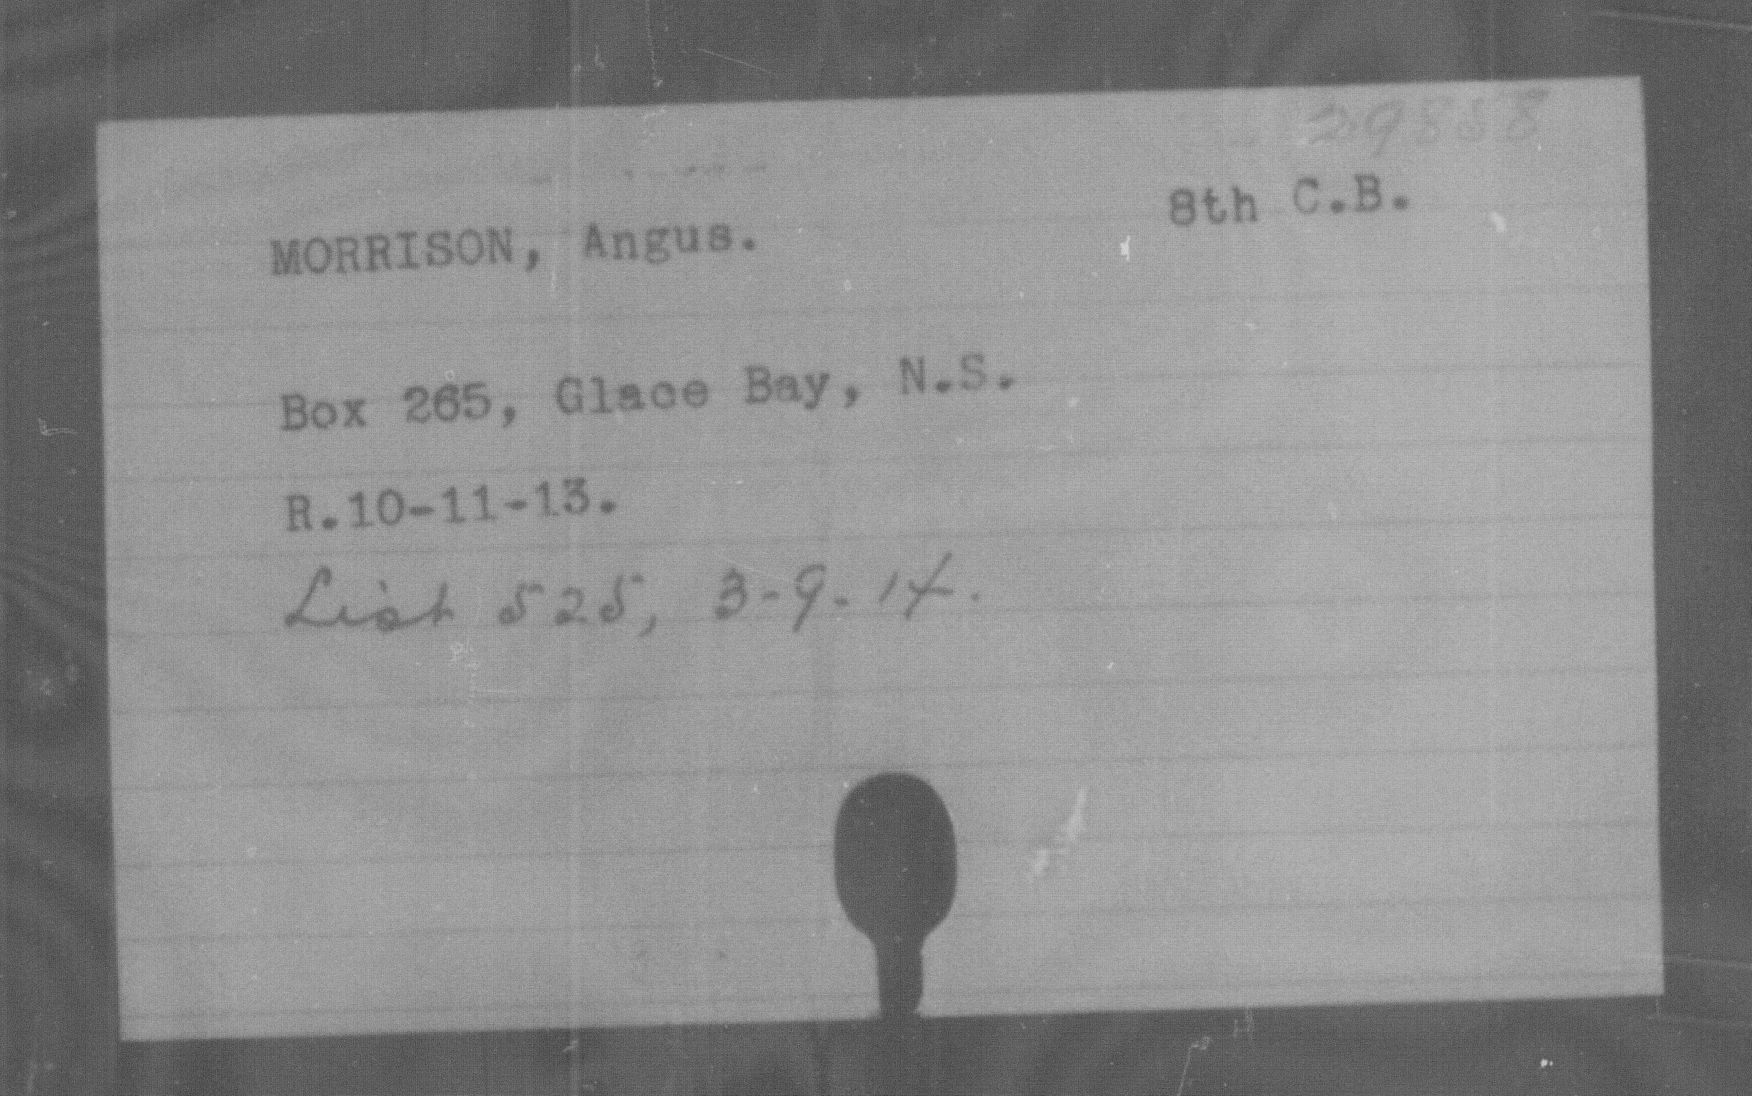 29558
8th C.B.
MORRISON, Angus.
Box 265, Glace Bay, N.S.
R.10-11-13.
List 525, 3-9-14.